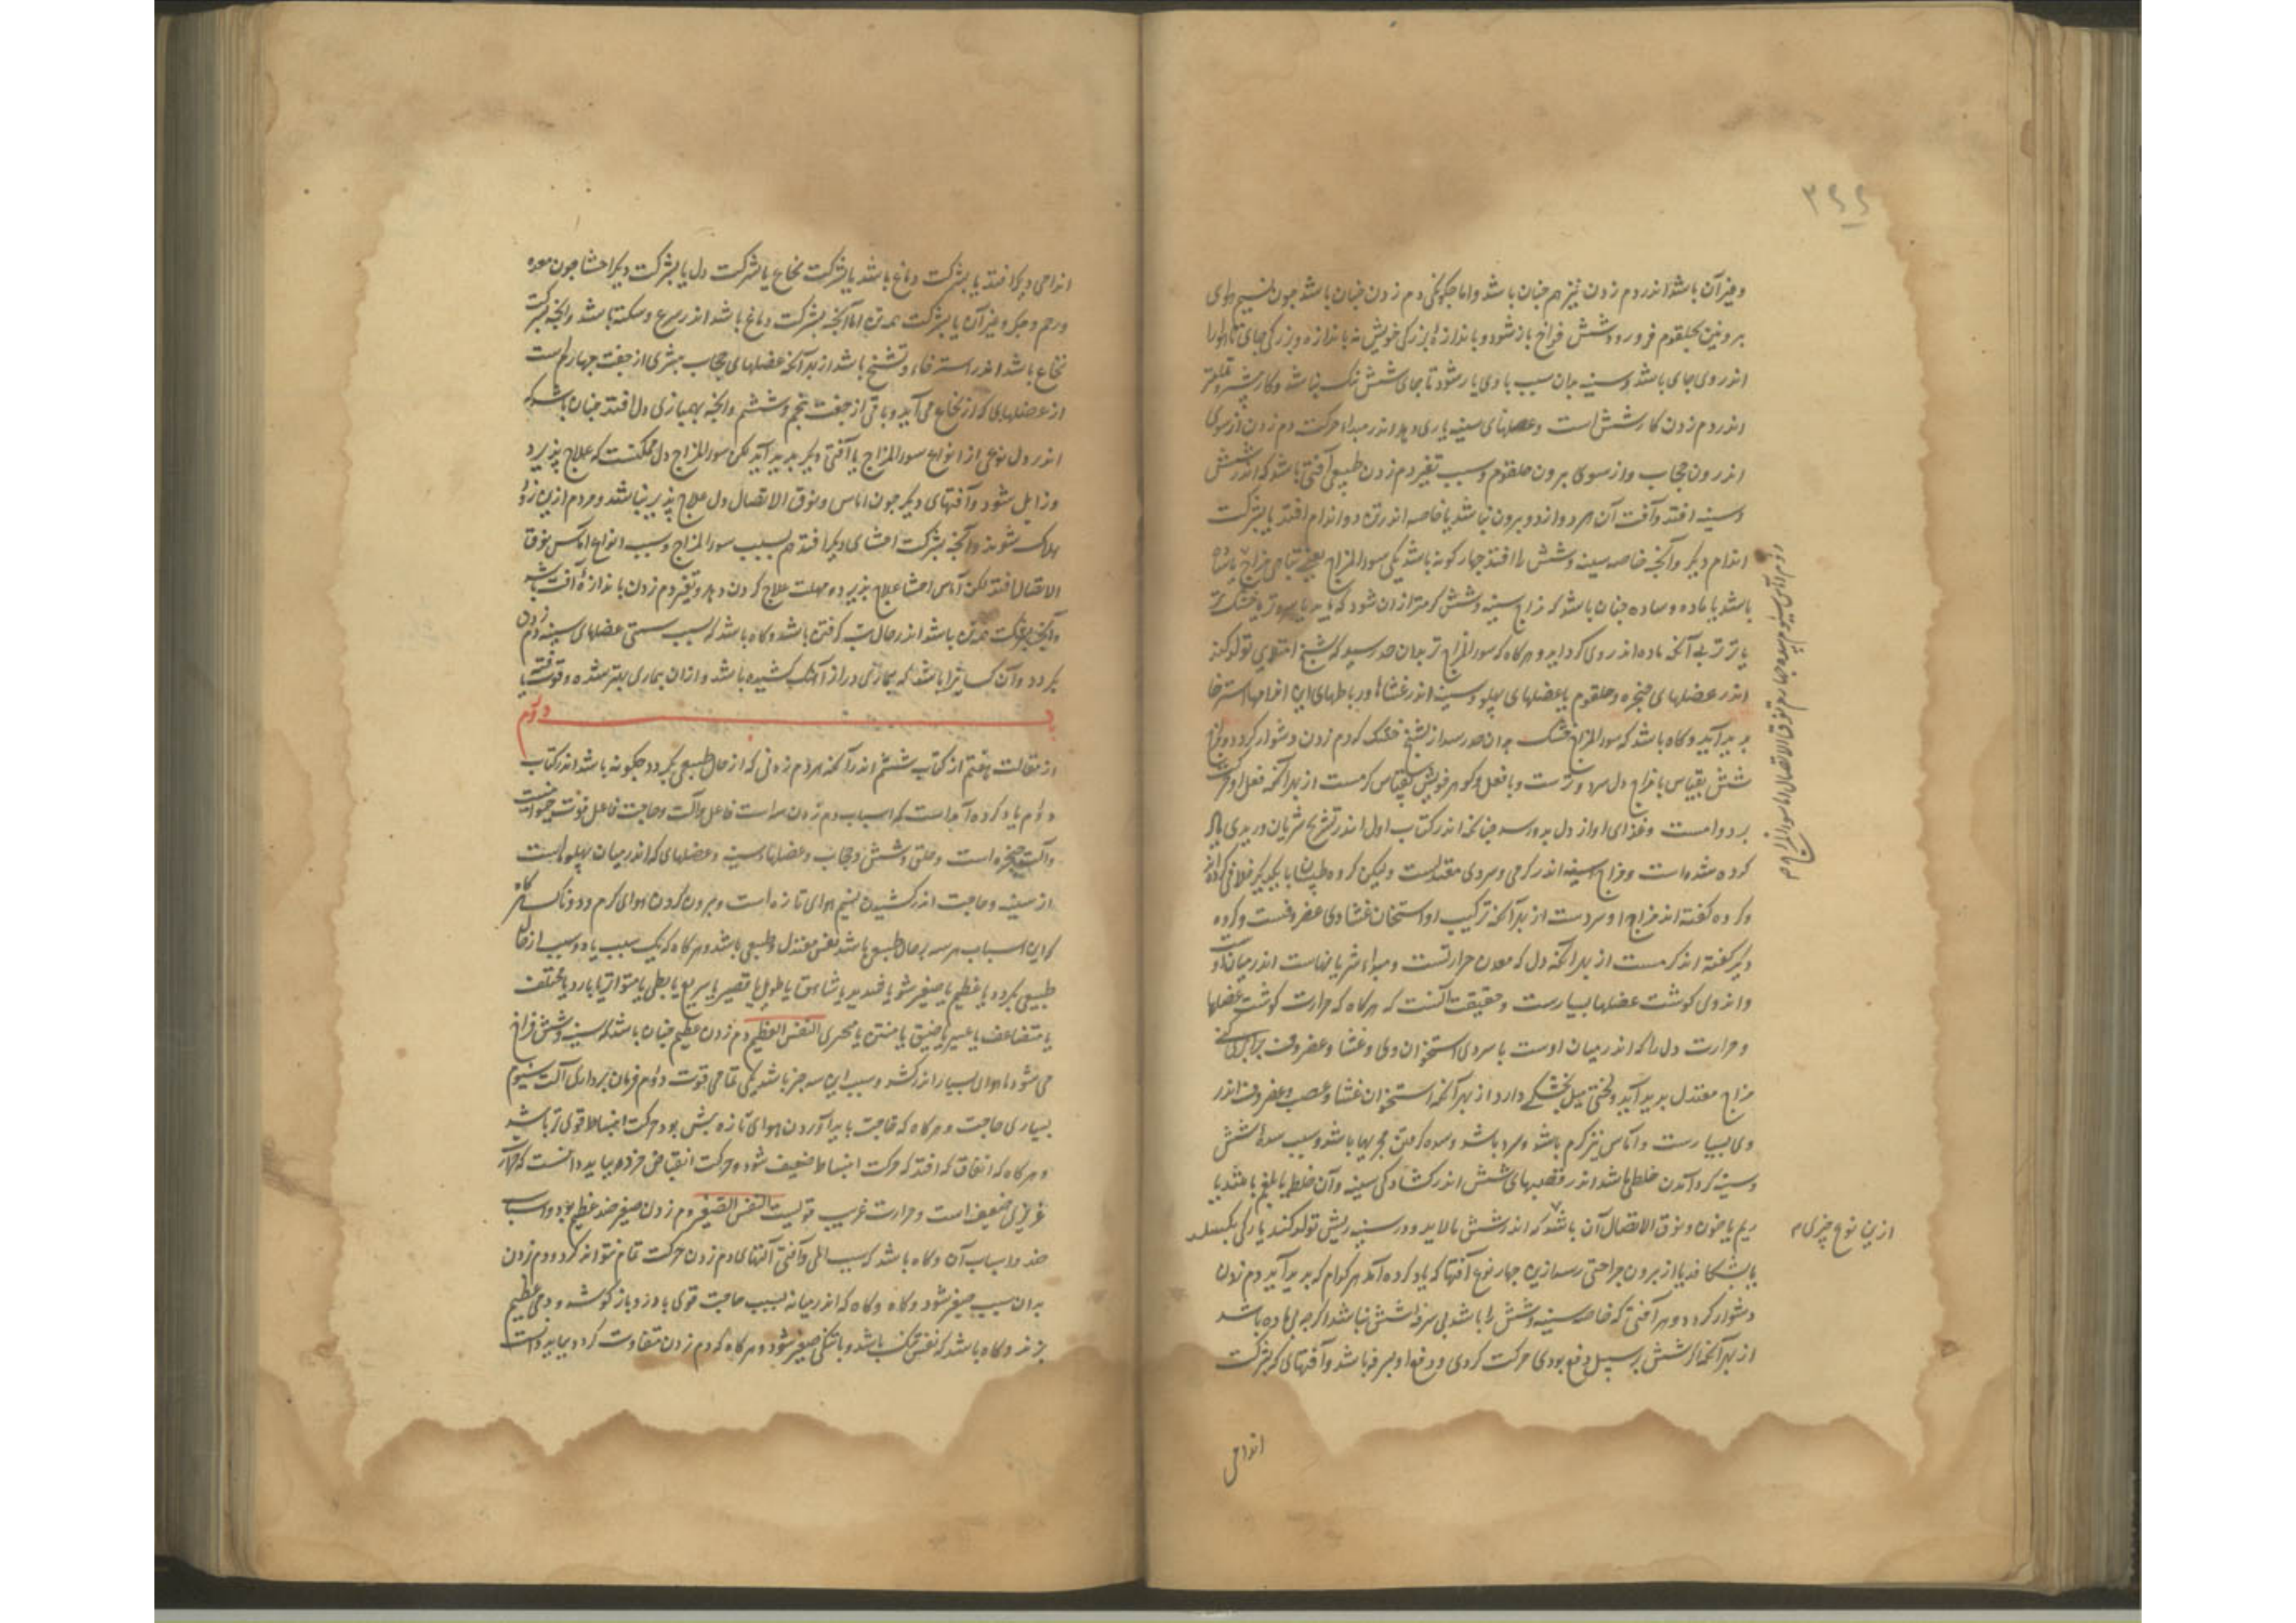 ۳۹۹
وغیر آن باشد اندر دم زدن نیز هم چنان باشد واما چکونکی دم زدن چنان باشد چون نسیم هوای
بیرونین بحلقوم فرو رود شش فراخ باز شود و باندازهٔ بزرکی خویش نه باندازه بزرکی جای تا هوا را
اندر وی جای باشد وسینه بدان سبب با وی یار شود تا جای شش تنک نباشد وکار
اندر دم زدن کار شش است وعضلهای سینه یاری دهد واندر مبداء حرکت دم زدن از سوی
اندرون حجاب واز سوی بیرون حلقوم وسبب تغیر دم زدن طبیعی آفتی باشد که اندر شش
وسینه افتد وآفت آن هر دو از دو بیرون نباشد یا خاصه اندرین دو اندام افتد یا بشرکت
اندام دیکر وآنچه خاصه سینه وشش را افتد چهار کونه باشد یکی سوء المزاج یعنی تباهی مزاج یا ساده
باشد یا با ماده وساده چنان باشد که مزاج سینه وشش کرمتر ازان شود که باید یا سردتر یا خشک تر
یا تر تر بی آنکه ماده اندر وی کرد آید وهرکاه که سوء المزاج تر بدان حد رسید که تشنج امتلایی تولد کند
اندر عضلهای حنجره وحلقوم یا عضلهای پهلو وسینه اندر غشاها ورباطهای این اندامها استرخا
پدید آید وکاه باشد که سوء المزاج خشک بدان حد رسد از تشنج خشک که دم زدن دشوار کردد ومزاج
شش بقیاس با مزاج دل سرد وترست وبا فعل وکوهر خویش بقیاس کرمست از بهر آنکه فعل او حرکت
بر دوامست وغذای او از دل بدو رسد چنانکه اندر کتاب اول اندر تشریح شریان وریدی یاد
کرده شده است ومزاج سینه اندر کرمی وسردی معتدلست ولیکن کروه طبیبان با یکدیکر خلافی کرده اند
وکروه کفته اند مزاج او سردست از بهر آنکه ترکیب او استخوان غشا وعصب وغضروفست وکروه
دیکر کفته اند کرمست از بهر آنکه دل که معدن حرارتست ومبداء شریانهاست اندر میان اوست
واندر وی کوشت عضلها بسیارست وحقیقت آنست که هرکاه که حرارت کوشت عضلها
وحرارت دل را که اندر میان اوست با سردی استخوان وی وغشا وغضروف برابر کنی
مزاج معتدل پدید آید ولختی میل بخشکی دارد از بهر آنکه استخوان وغشا وعصب وغضروف اندر
وی بسیارست وآماس نیز کرم باشد وسرد باشد وسده کرفتن مجریها باشد وسبب سدهٔ شش
وسینه کرد آمدن خلطی باشد اندر قصبهای شش اندر کشادکی سینه وآن خلط یا بلغم باشد یا
ریم یا خون وتفرق الاتصال آن باشد که اندر شش بالاید ودر سینه ریش تولد کند یا رکی بکسلد
یا بشکافد یا از بیرون جراحتی رسد ازین چهار نوع آفتها که یاد کرده آمد هر کدام که پدید آید دم زدن
دشوار کردد وهر آفتی که خاصه سینه وشش را باشد بی سرفه نباشد اکرچه بی ماده باشد
از بهر آنکه شش بر سبیل دفع بودی حرکت کردی ودفع او بسرفه باشد وآفتهای که بشرکت
ازین نوع چیزی م
اندامی
اندامی دیکر افتد یا بشرکت دماغ باشد یا بشرکت نخاع یا بشرکت دل یا بشرکت دیکر احشا چون معده
ورحم وجکر وغیر آن یا بشرکت همه تن اما آنچه بشرکت دماغ باشد اندر صرع وسکته باشد وآنچه بشرکت
نخاع باشد اندر استرخاء وتشنج باشد از بهر آنکه عضلهای حجاب بیشتری از جفت چهارم است
از عضلهای که از نخاع می آید وباقی از جفت پنجم وششم وآنچه بهمبازی دل افتد چنان باشد که
اندر دل نوعی از انواع سوء المزاج یا آفتی دیکر پدید آید لکن سوء المزاج دل ممکنست که علاج پذیرد
وزایل شود وآفتهای دیکر چون آماس وتفرق الاتصال دل علاج پذیر نباشد ومردم ازین زود
هلاک شوند وآنچه بشرکت احشای دیکر افتد هم بسبب سوء المزاج وسبب انواع آماس تفرق
الاتصال افتد لکن آماس احشا علاج پذیرد ومهلت علاج کردن دهد وتغیر دم زدن باندازهٔ آفت باشد
وآنچه بشرکت همه تن باشد اندر حال تب کرفتن باشد وکاه باشد که بسبب سستی عضلهای سینه دم زدن
بکردد وآن کسانی را باشد که بیماری دراز آهنک کشیده باشد وازان بیماری بهتر شده وقوت
باب دوم
از مقالت هفتم از کتاب ششم اندر آنکه هر دم زدنی که از حال طبیعی بکردد چکونه باشد اندر کتاب
دوم یاد کرده آمداست که اسباب دم زدن سه است فاعل وآلت وحاجت فاعل قوت حیوانیست
وآلت حنجره است وحلق وشش وحجاب وعضلها وسینه وعضلهای که اندر میان پهلوهاست
از سینه وحاجت اندر کشیدن نسیم هوای تازه است وبیرون کردن هوای کرم ودودناک هرکاه
که این اسباب هر سه بر حال طبیعی باشد نفس معتدل وطبیعی باشد وهرکاه که یک سبب یا دو سبب از حال
طبیعی بکردد یا عظیم یا صغیر شود یا شدید یا شاهق یا طویل یا قصیر یا سریع یا بطی یا متواتر یا بارد یا مختلف
یا متضاعف یا عسیر یا ضیق یا منتن یا محری النفس العظیم دم زدن عظیم چنان باشد که سینه وشش فراخ
می شود تا هوای بسیار اندر کشد وسبب این سه چیز باشد یکی تمامی قوت دوم فرمان برداری آلت سیوم
بسیاری حاجت وهرکاه که حاجت باندر آوردن هوای تازه بیش بود حرکت انبساط قوی تر باشد
وهرکاه که اتفاق که افتد که حرکت انبساط ضعیف شود وحرکت انقباض بیاید دانست که حرارت
غریزی ضعیف است وحرارت غریب قویست النفس الصغیر دم زدن صغیر ضد عظیم بود واسباب
ضد اسباب آن وکاه باشد که بسبب المی وآفتی آلتهای دم زدن حرکت تمام نتواند کرد ودم زدن
بدان سبب صغیر شود وکاه وکاه که اندر میانه بسبب حاجت قوی باز کوشد ودمی عظیم
بزند وکاه باشد که نفس تنک باشد وبا تنکی صغیر شود وهرکاه که دم زدن متفاوت کردد بباید دانست